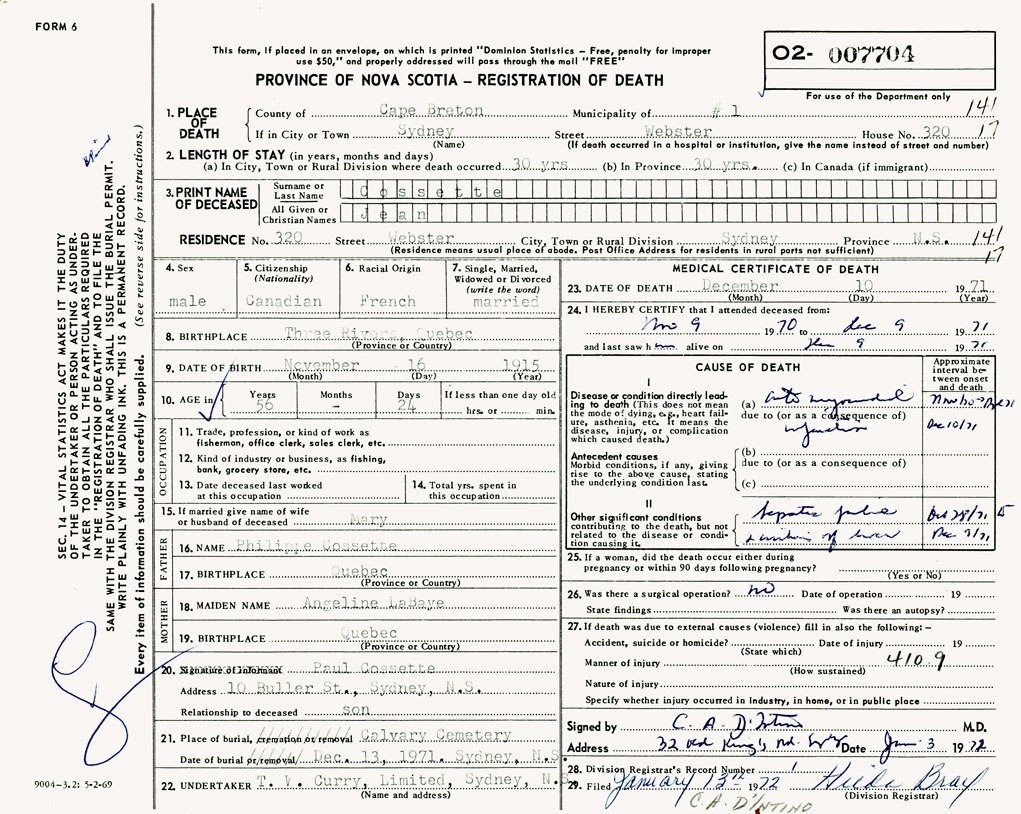 FORM 6
This form, if placed in an envelope, on which is printed "Dominion Statistics – Free, penalty for improper
use $50," and properly addressed will pass through the mail "FREE"
PROVINCE OF NOVA SCOTIA – REGISTRATION OF DEATH
02- 007704
For use of the Department only
141
17
1. PLACE OF DEATH
County of Cape Breton Municipality of # 1
If in City or Town Sydney Street Webster House No. 320
(Name) (If death occurred in a hospital or institution, give the name instead of street and number)
2. LENGTH OF STAY (in years, months and days)
(a) In City, Town or Rural Division where death occurred 30 yrs. (b) In Province 30 yrs. (c) In Canada (if immigrant)
3. PRINT NAME OF DECEASED
Surname or Last Name Cossette
All Given or Christian Names Jean
RESIDENCE No. 320 Street Webster City, Town or Rural Division Sydney Province N.S. 141
(Residence means usual place of abode. Post Office Address for residents in rural parts not sufficient)
17
4. Sex
male
5. Citizenship
(Nationality)
Canadian
6. Racial Origin
French
7. Single, Married,
Widowed or Divorced
(write the word)
married
8. BIRTHPLACE Three Rivers, Quebec
(Province or Country)
9. DATE OF BIRTH November 16 1915
(Month) (Day) (Year)
10. AGE in
Years 56
Months –
Days 24
If less than one day old
hrs. or min.
OCCUPATION
11. Trade, profession, or kind of work as
fisherman, office clerk, sales clerk, etc.
12. Kind of industry or business, as fishing,
bank, grocery store, etc.
13. Date deceased last worked
at this occupation
14. Total yrs. spent in
this occupation
15. If married give name of wife
or husband of deceased Mary
FATHER
16. NAME Philippe Cossette
17. BIRTHPLACE Quebec
(Province or Country)
MOTHER
18. MAIDEN NAME Angeline LaBaye
19. BIRTHPLACE Quebec
(Province or Country)
20. Signature of Informant Paul Cossette
Address 10 Buller St., Sydney, N.S.
Relationship to deceased son
21. Place of burial, cremation or removal Calvary Cemetery
Date of burial or removal Dec. 13, 1971. Sydney, N.S.
22. UNDERTAKER T. W. Curry, Limited, Sydney, N.S.
(Name and address)
MEDICAL CERTIFICATE OF DEATH
23. DATE OF DEATH December 10 1971
(Month) (Day) (Year)
24. I HEREBY CERTIFY that I attended deceased from:
Nov 9 1970 to Dec 9 1971
and last saw h alive on 9 1971
CAUSE OF DEATH
Approximate
interval be-
tween onset
and death
I
Disease or condition directly lead-
ing to death (This does not mean
the mode of dying, e.g., heart fail-
ure, asthenia, etc. It means the
disease, injury, or complication
which caused death.)
(a) myocardial
due to (or as a consequence of)
infarction
Dec 10/71
Antecedent causes
Morbid conditions, if any, giving
rise to the above cause, stating
the underlying condition last.
(b)
due to (or as a consequence of)
(c)
II
Other significant conditions
contributing to the death, but not
related to the disease or condi-
tion causing it.
hepatic failure
of liver
25. If a woman, did the death occur either during
pregnancy or within 90 days following pregnancy?
(Yes or No)
26. Was there a surgical operation? no Date of operation 19
State findings Was there an autopsy?
27. If death was due to external causes (violence) fill in also the following: –
Accident, suicide or homicide? Date of injury 19
(State which)
Manner of injury 410.9
(How sustained)
Nature of injury
Specify whether injury occurred in industry, in home, or in public place
Signed by C. A. D'Intino M.D.
Address 32 Old King's Rd. Date Jan 3 1972
28. Division Registrar's Record Number 1
29. Filed January 13th 1972 Hilda Bray
(Division Registrar)
C. A. D'INTINO
SEC. 14 – VITAL STATISTICS ACT MAKES IT THE DUTY
OF THE UNDERTAKER OR PERSON ACTING AS UNDER-
TAKER TO OBTAIN ALL THE PARTICULARS REQUIRED
IN THE "REGISTRATION OF DEATH" AND TO FILE THE
SAME WITH THE DIVISION REGISTRAR WHO SHALL ISSUE THE BURIAL PERMIT.
WRITE PLAINLY WITH UNFADING INK. THIS IS A PERMANENT RECORD.
Every item of information should be carefully supplied. (See reverse side for instructions.)
9004-3.2: 5-2-69